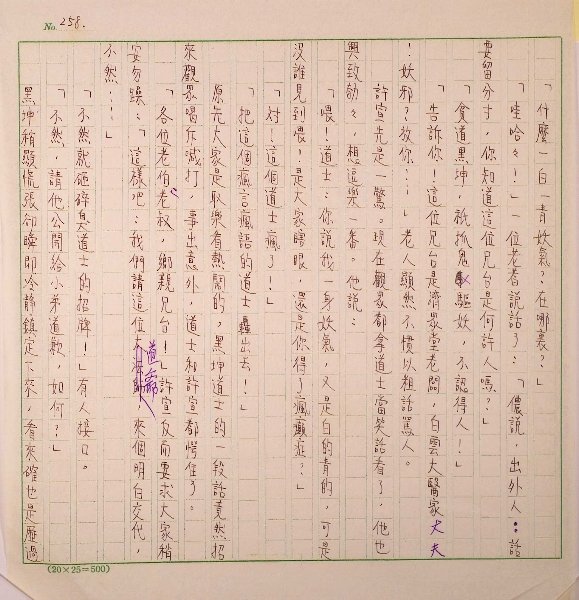 No. 258.
「什麼一白一青妖氣？在哪裏？」
「哇哈々！」一位老者說話了：「儂說，出外人：話
要留分寸，你知道這位兄台是何許人嗎？」
「貧道黑坤，祇抓鬼驅妖，不認得人！」
「告訴你！這位兄台是濟眾堂老闆，白雲大醫家大夫
！妖邪？放你…！」老人顯然不慣以粗話罵人。
許宣先是一驚。現在觀眾都拿道士當笑話看了，他也
興致勃々，想逗樂一番。他說：
「喂！道士：你說我一身妖氣，又是白的青的，可是
沒誰見到喂，是大家瞎眼，還是你得了瘋癲症？」
「對！這個道士瘋了！」
「把這個瘋言瘋語的道士轟出去！」
原先大家是取樂看熱鬧的，黑坤道士的一段話竟然招
來觀眾喝斥喊打，事出意外，道士和許宣都愕住了。
「各位老伯老叔，鄉親兄台！」許宣反而要求大家稍
安勿躁：「這樣吧：我們請這位道爺，來個明白交代，
不然…！」
「不然就砸碎臭道士的招牌！」有人接口。
「不然，請他公開給小弟道歉，如何？」
黑坤稍顯慌張卻瞬即冷靜鎮定下來，看來確也是歷過
(20×25=500)